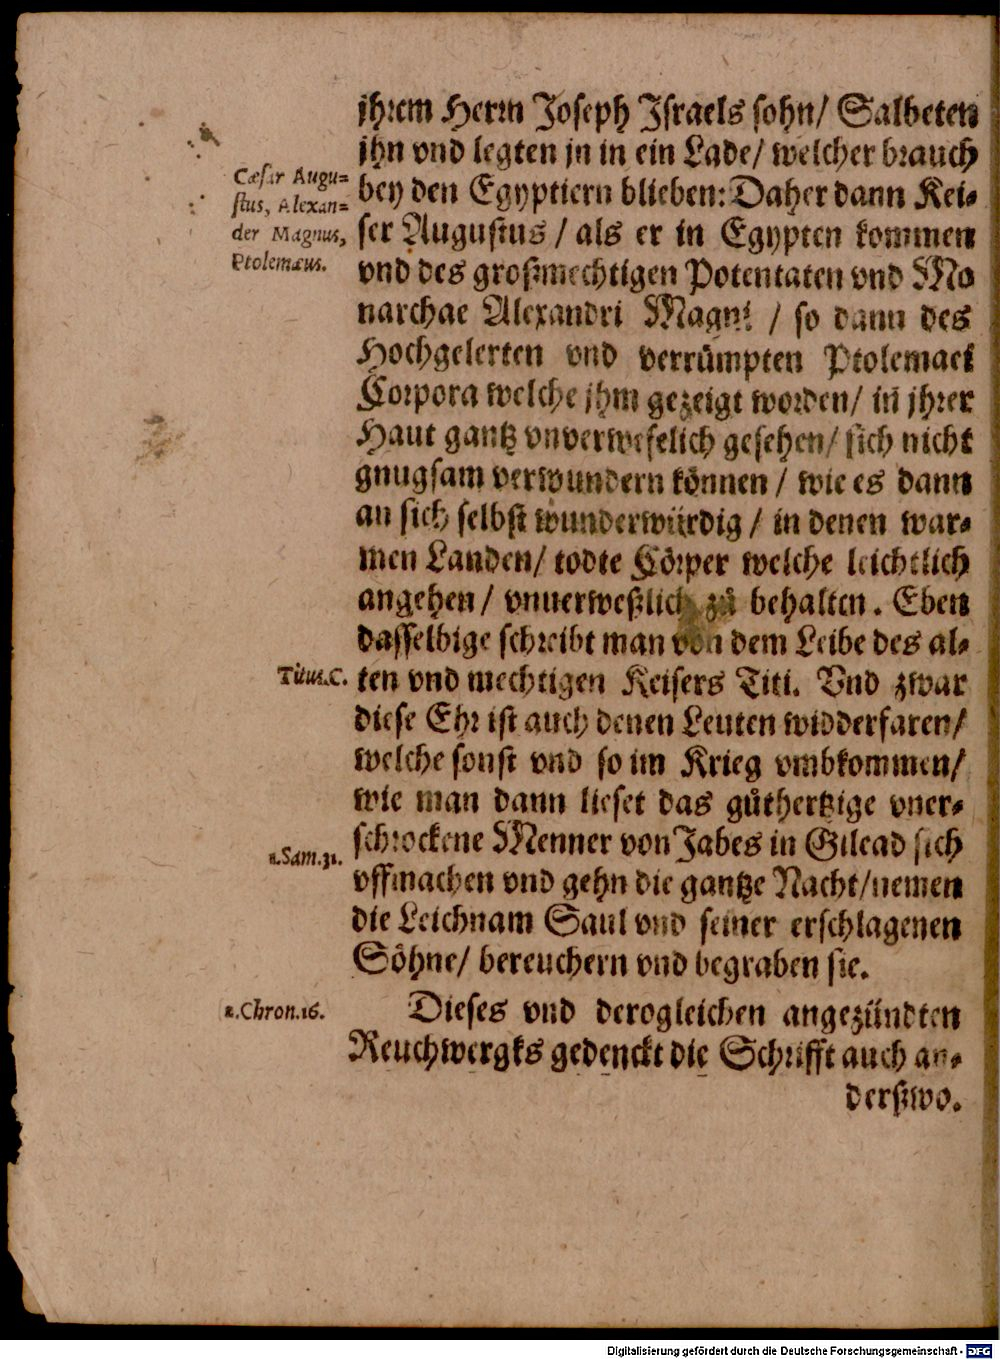 jhrem Herrn Joseph Jsraels sohn/ Salbeten
jhn vnd legten jn in ein Lade/ welcher brauch
Cæsar Augu=
stus, Alexan=
der Magnus,
Ptolemæus.
bey den Egyptiern blieben: Daher dann Kei-
ser Augustus / als er in Egypten kommen
vnd des großmechtigen Potentaten vnd Mo
narchae Alexandri Magni / so dann des
Hochgelerten vnd verrümpten Ptolemaei
Corpora welche jhm gezeigt worden/ in jhrer
Haut gantz vnverweselich gesehen/ sich nicht
gnugsam verwundern können / wie es dann
an sich selbst wunderwürdig / in denen war-
men Landen/ todte Cörper welche leichtlich
angehen / vnuerweßlich zů behalten. Eben
dasselbige schreibt man von dem Leibe des al-
Titus.C.
ten vnd mechtigen Keisers Titi. Vnd zwar
diese Ehr ist auch denen Leuten widderfaren/
welche sonst vnd so im Krieg vmbkommen/
wie man dann lieset das gůthertzige vner-
schrockene Menner von Jabes in Gilead sich
1.Sam.31.
vffmachen vnd gehn die gantze Nacht/nemen
die Leichnam Saul vnd seiner erschlagenen
Söhne/ bereuchern vnd begraben sie.
2.Chron.16.
Dieses vnd derogleichen angezündten
Reuchwergks gedenckt die Schrifft auch an-
derßwo.
Digitalisierung gefördert durch die Deutsche Forschungsgemeinschaft - DFG